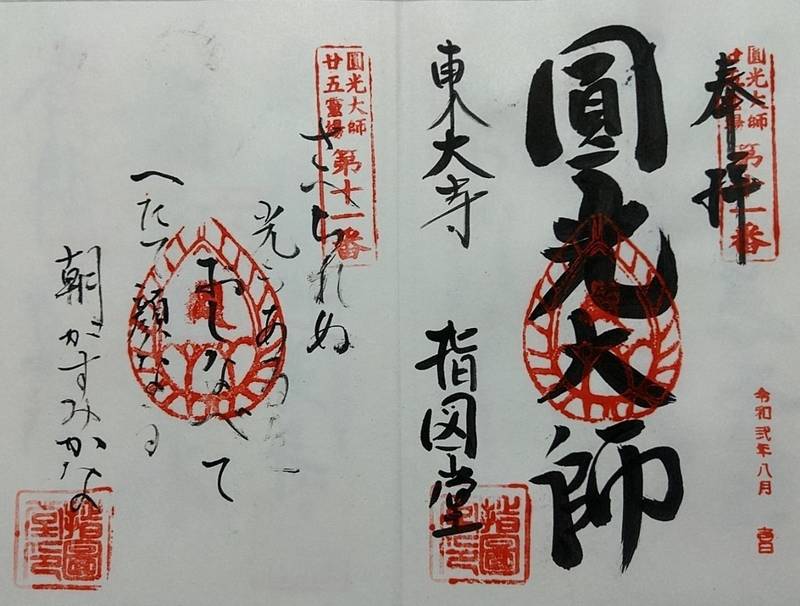 奉拝
圓光大師
廿五靈場
第十一番
令和弐年八月
圓光大師
東大寺
指図堂
指圖
堂印
圓光大師
廿五靈場
第十一番
さへられぬ
光もあるを
おしなべて
へたて顔なる
朝がすみかな
指圖
堂印